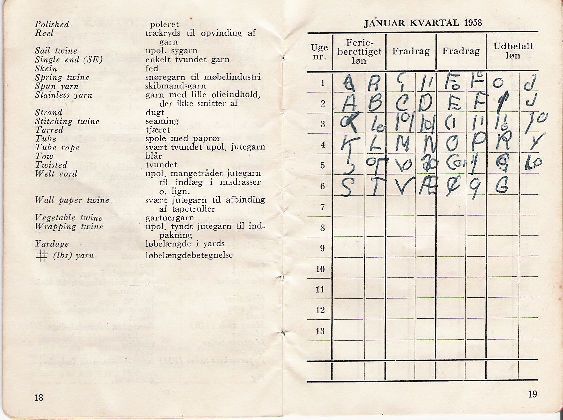 Polished poleret
Reel trækryds til opvinding af
garn
Sail twine upol. sygarn
Single end (SE) enkelt tvundet garn
Skein fed
Spring twine snøregarn til møbelindustri
Spun yarn skibmand-garn
Stainless yarn garn med lille olieindhold,
der ikke smitter af
Strand dugt
Stitching twine seaming
Tarred tjæret
Tube spole med paprør
Tube rope svært tvundet upol. jutegarn
Tow blår
Twisted tvundet
Welt cord upol. mangetrådet jutegarn
til indlæg i madrasser
o. lign.
Wall paper twine svært jutegarn til afbinding
af tapetruller
Vegetable twine gartnergarn
Wrapping twine upol. tyndt jutegarn til ind-
pakning
Yardage løbelængde i yards
# (lbs) yarn løbelængdebetegnelse
18
JANUAR KVARTAL 1958
Uge nr. Ferie-berettiget løn Fradrag Fradrag Udbetalt løn
1
2 A B C D E F J
3
4 K L M N O P R
5
6 S T V Æ Ø G
7
8
9
10
11
12
13
19